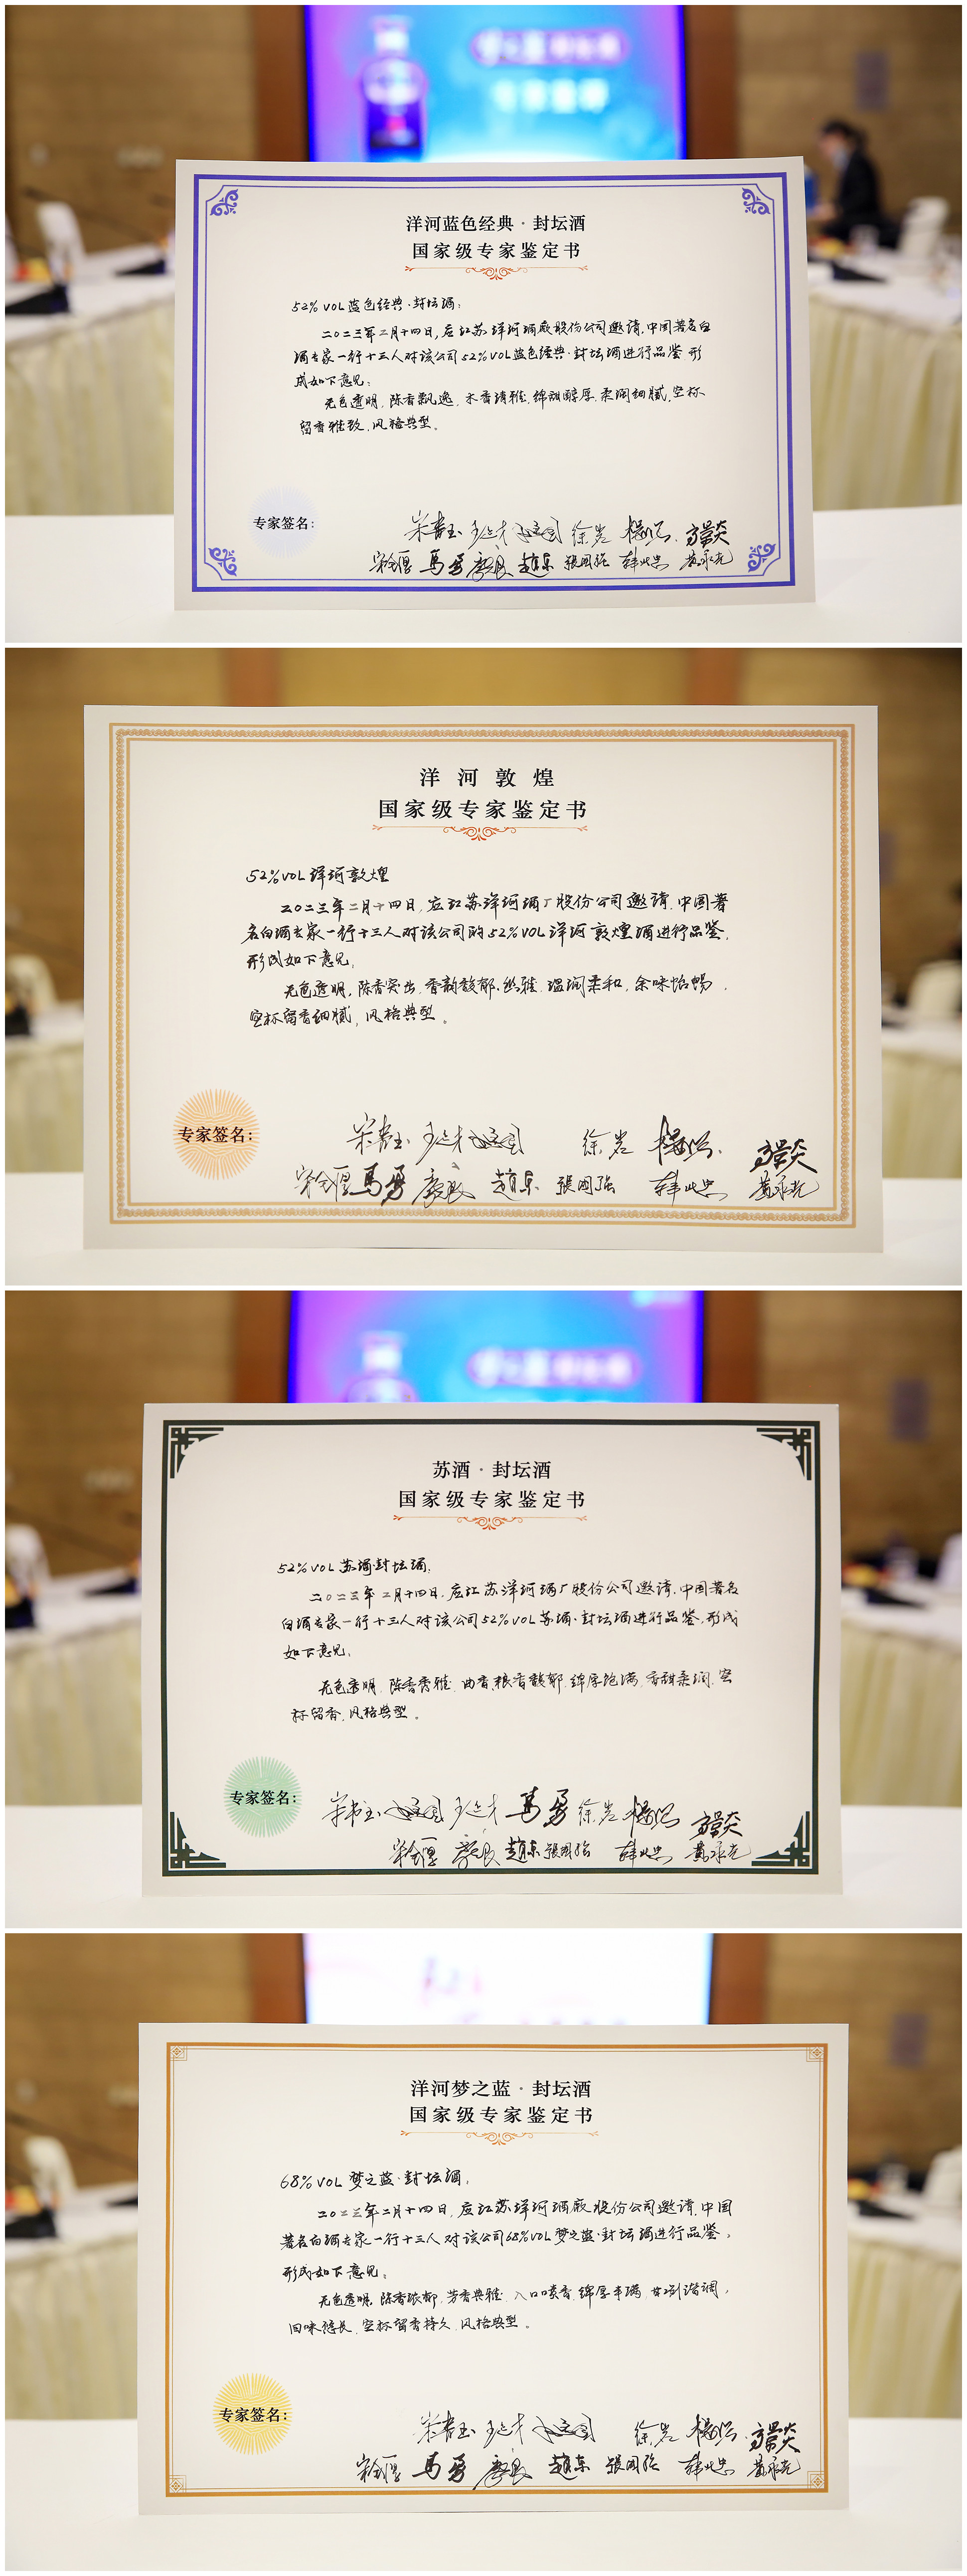 洋河蓝色经典·封坛酒
国家级专家鉴定书
52%VOL蓝色经典·封坛酒:
二〇二三年二月十四日,应江苏洋河酒厰股份公司邀请,中国著名白
酒专家一行十三人对该公司52%VOL蓝色经典·封坛酒进行品鉴 形
成如下意见:
无色透明,陈香飘逸,木香清雅,绵甜醇厚,柔润细腻,空杯
留香雅致,风格典型。
专家签名:
徐岩
马勇
赵东 張国强
洋河敦煌
国家级专家鉴定书
52%VOL洋河敦煌
二〇二三年二月十四日,应江苏洋河酒厂股份公司邀请,中国著
名白酒专家一行十三人对该公司的52%VOL洋河敦煌酒进行品鉴,
形成如下意见,
无色透明,陈香突出,香韵馥郁、幽雅,温润柔和,余味怡畅,
空杯留香细腻,风格典型。
专家签名:
徐岩
马勇 赵东 張国强
苏酒·封坛酒
国家级专家鉴定书
52%VOL苏酒·封坛酒,
二〇二三年二月十四日,应江苏洋河酒厂股份公司邀请,中国著名
白酒专家一行十三人对该公司52%VOL苏酒·封坛酒进行品鉴,形成
如下意见,
无色透明,陈香秀雅,曲香、粮香馥郁,绵厚饱满,香甜柔润,空
杯留香,风格典型。
专家签名:
马勇 徐岩
赵东 張国强
洋河梦之蓝·封坛酒
国家级专家鉴定书
68%VOL梦之蓝·封坛酒,
二〇二三年二月十四日,应江苏洋河酒厰股份公司邀请,中国
著名白酒专家一行十三人对该公司68%VOL梦之蓝·封坛酒进行品鉴,
形成如下意见:
无色透明,陈香浓郁,芳香典雅,入口喷香,绵厚丰满,甘冽谐调,
回味悠长,空杯留香持久,风格典型。
专家签名:
徐岩
马勇 赵东 張国强